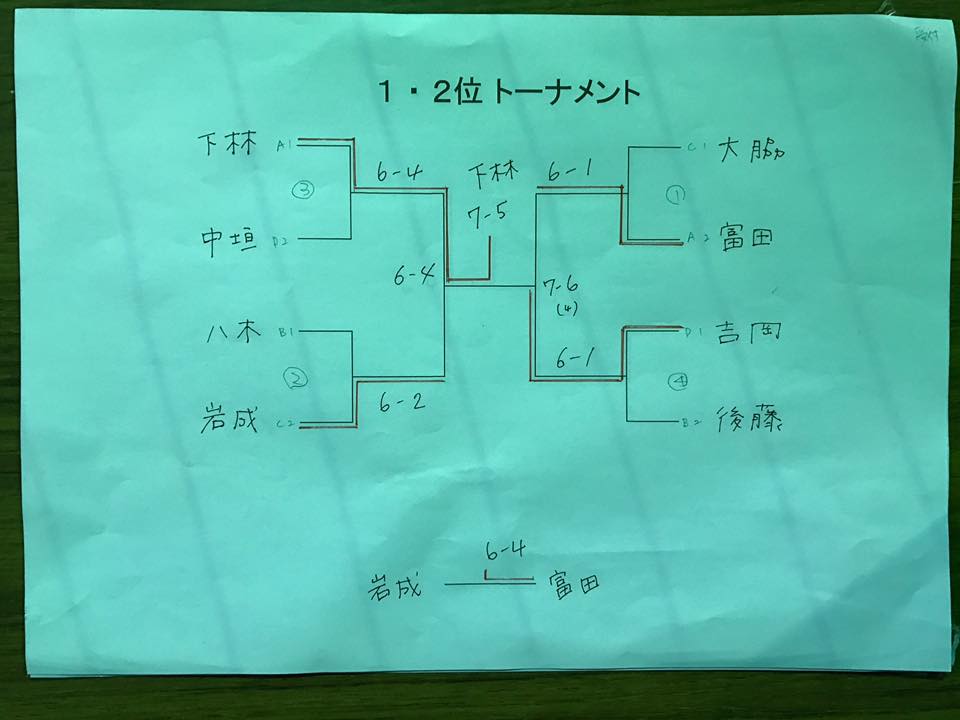 受付
1・2位 トーナメント
下林 A1 6-4 下林 6-1 C1 大脇
③ 7-5 ①
中垣 D2 A2 富田
6-4 7-6
(4)
八木 B1 6-1 D1 吉岡
② 6-2 ④
岩成 C2 B2 後藤
6-4
岩成 富田